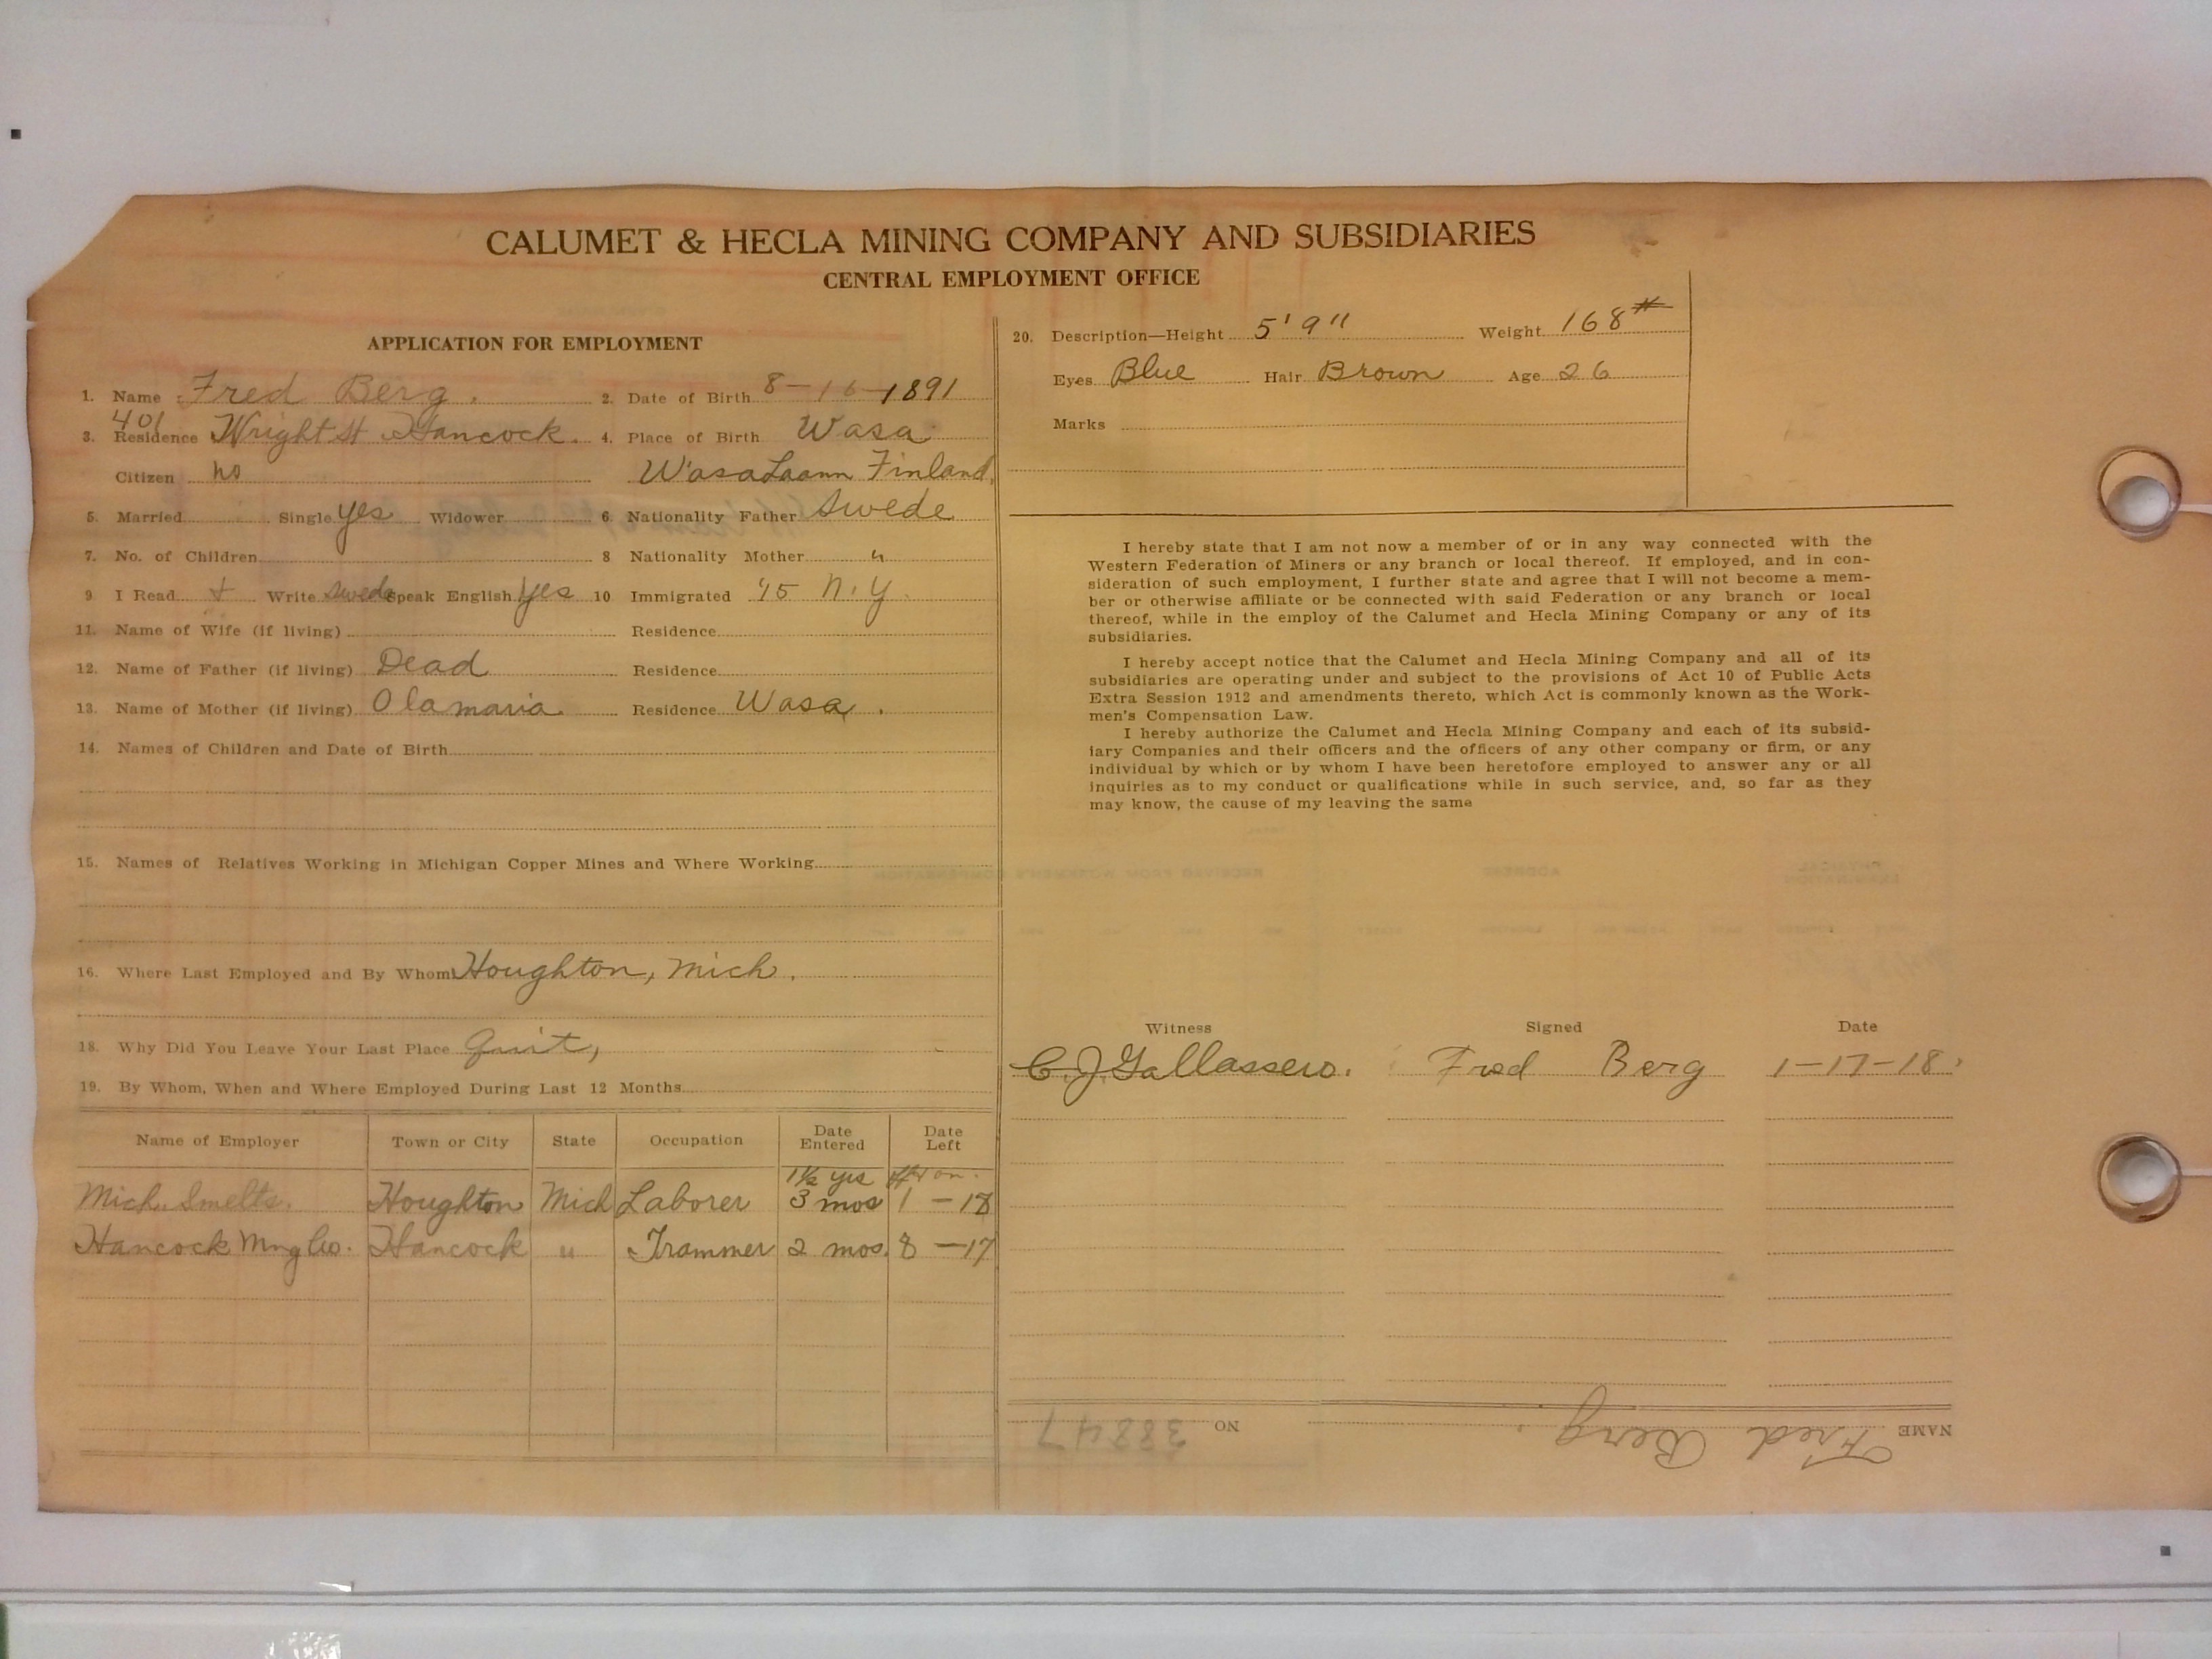 CALUMET & HECLA MINING COMPANY AND SUBSIDIARIES
CENTRAL EMPLOYMENT OFFICE
APPLICATION FOR EMPLOYMENT
1. Name Fred Berg. 2. Date of Birth 8-16-1891
401
3. Residence Wright St Hancock. 4. Place of Birth Wasa
Citizen no WasaLaann Finland.
5. Married Single yes Widower 6. Nationality Father Swede
7. No. of Children 8 Nationality Mother "
9. I Read + Write Swede Speak English Yes 10 Immigrated '15 N.Y.
11. Name of Wife (if living) Residence
12. Name of Father (if living) Dead Residence
13. Name of Mother (if living) Olamaria Residence Wasa.
14. Names of Children and Date of Birth
15. Names of Relatives Working in Michigan Copper Mines and Where Working
16. Where Last Employed and By Whom Houghton, Mich.
18. Why Did You Leave Your Last Place Quit,
19. By Whom, When and Where Employed During Last 12 Months
Name of Employer Town or City State Occupation Date Entered Date Left
1½ yrs off + on.
Mich. Smelts. Houghton Mich Laborer 3 mos 1-18
Hancock Mng Co. Hancock " Trammer 2 mos. 8-17
20. Description—Height 5'9" Weight 168#
Eyes Blue Hair Brown Age 26
Marks
I hereby state that I am not now a member of or in any way connected with the
Western Federation of Miners or any branch or local thereof. If employed, and in con-
sideration of such employment, I further state and agree that I will not become a mem-
ber or otherwise affiliate or be connected with said Federation or any branch or local
thereof, while in the employ of the Calumet and Hecla Mining Company or any of its
subsidiaries.
I hereby accept notice that the Calumet and Hecla Mining Company and all of its
subsidiaries are operating under and subject to the provisions of Act 10 of Public Acts
Extra Session 1912 and amendments thereto, which Act is commonly known as the Work-
men's Compensation Law.
I hereby authorize the Calumet and Hecla Mining Company and each of its subsid-
iary Companies and their officers and the officers of any other company or firm, or any
individual by which or by whom I have been heretofore employed to answer any or all
inquiries as to my conduct or qualifications while in such service, and, so far as they
may know, the cause of my leaving the same
Witness Signed Date
C. J. Gallassero. Fred Berg 1-17-18.
NAME Fred Berg. NO 38847